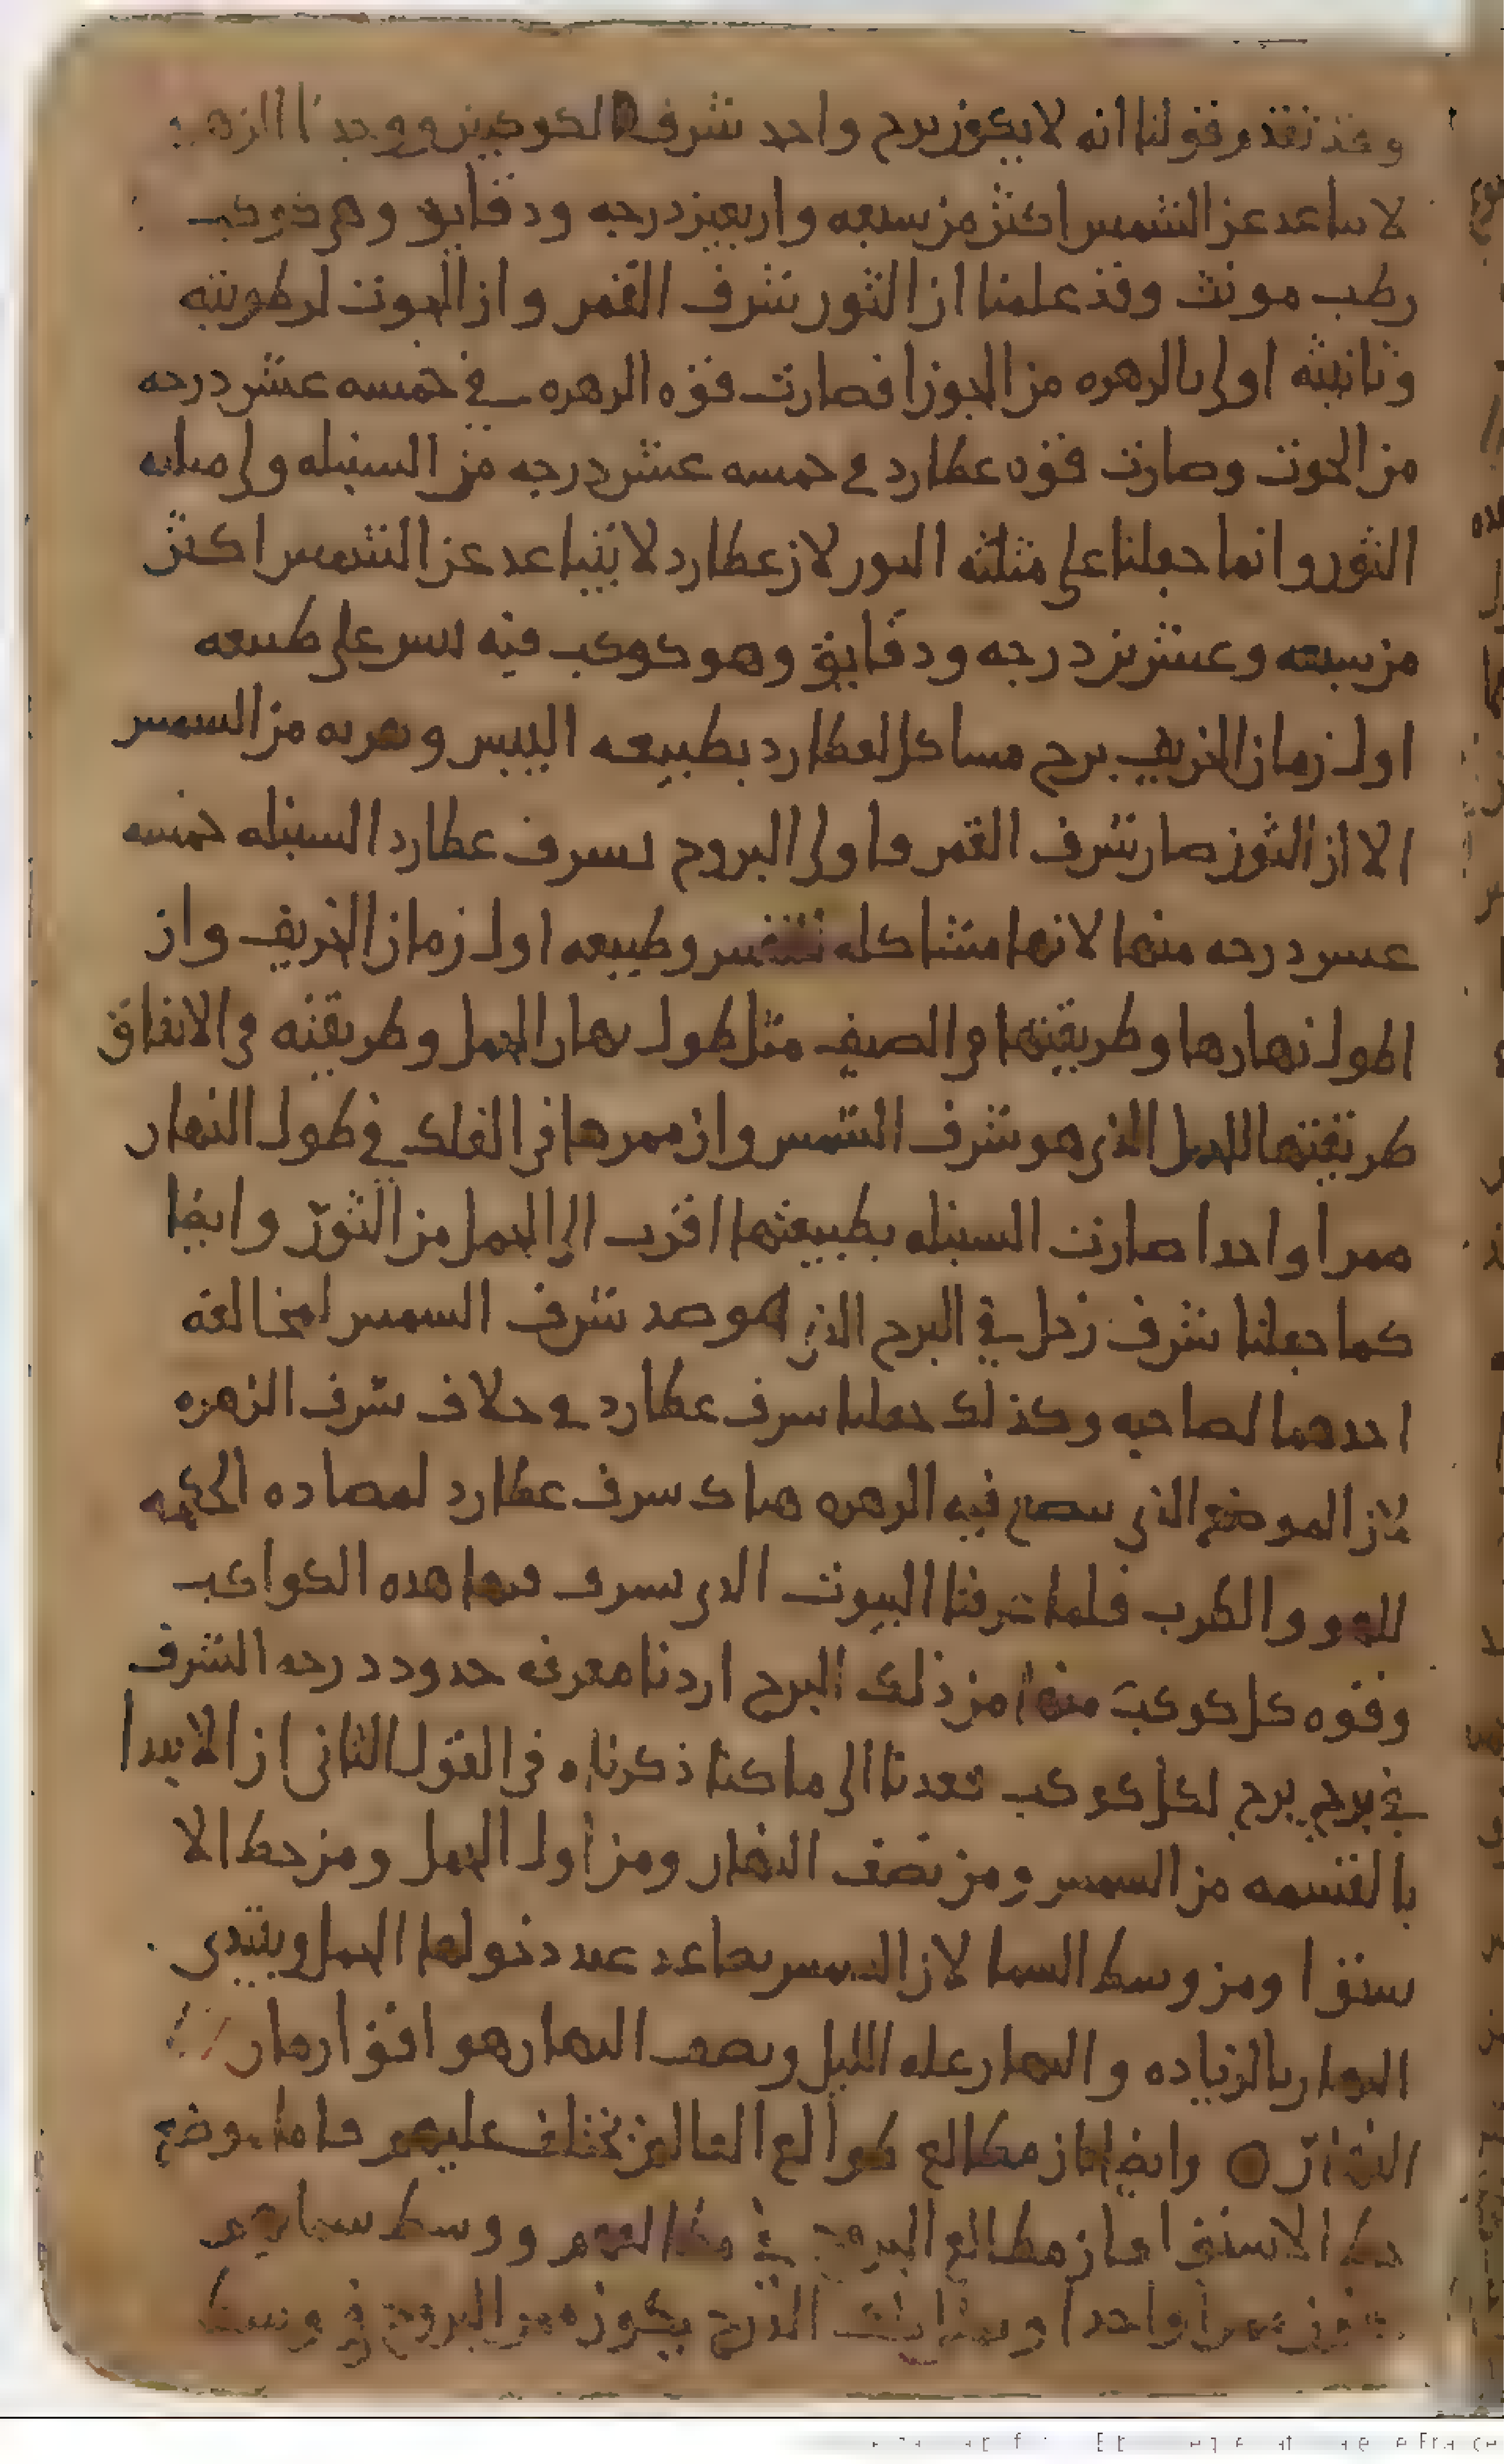 وقد تقدم قولنا انه لا يكون برج واحد شرف الكوكبين ووجدنا الزهره
لا ساعد عن الشمس اكثر من سبعه واربعين درجه ودقايق وهي كوكب
رطب مونث وقد علمنا ان الثور شرف القمر وان الحوت لرطوبته
وتانيثه اولى بالزهره من الجوزا فصارت قوه الزهره في خمسه عشر درجه
من الحوت وصارت قوه عطارد في خمسه عشر درجه من السنبله ولى مىلىه
الثور وانما جعلنا على مثلثه الىور لان عطارد لا يتباعد عن الشمس اكثر
من سبعه وعشرين درجه ودقايق وهو كوكب فيه ىىس على طبيعه
اول زمان الخريف برج مساكل لعطارد بطبيعه اليبس وىعربه من السمس
الا ان الثور صار شرف القمر واولى البروج لسرف عطارد السنبله خمسه
عسر درجه منها لانها متشاكله وطبيعه اول زمان الخريف وان
طول نهارها وطريقتها في الصيف مثل طول نهار الحمل وطريقته في الاتفاق
طريقتها للحمل الذي هو شرف الشمس وان ممرها في الفلك في طول النهار
ممرا واحدا صارت السنبله بطبيعتها اقرب الى الحمل من الثور وايضا
كما جعلنا شرف زحل في البرج الذي هو ضد شرف السمس لمخالفه
احدهما لصاحبه وكذلك جعلنا سرف عطارد في خلاف شرف الزهره
لان الموضع الذي ىىصع فيه الزهره هناك سرف عطارد لمضاده الحكمه
للهو والطرب فلما عرفنا البيوت التي تسرف فيها هذه الكواكب
وقوه كل كوكب منها من ذلك البرج اردنا معرفه حدود درجه الشرف
في برج برج لكل كوكب فعدنا الى ما كنا ذكرناه في القول الثاني ان الابتدا
بالقسمه من السمس ومن نصف النهار ومن اول الحمل ومن خط الا
ستوا ومن وسط السما لان الشمس تصاعد عند دخولها الحمل ويبتدي
النهار بالزياده والنهار عله الليل ونصف النهار هو اقوا ازمان
النهار ○ وايضا فان مطالع طوالع العالم تختلف عليهم فاما موضع
خط الاستوا فان مطالع البروج في مطالعهم ووسط سمايهم
ممرا واحدا البرج يكون ممر البروج في وسط